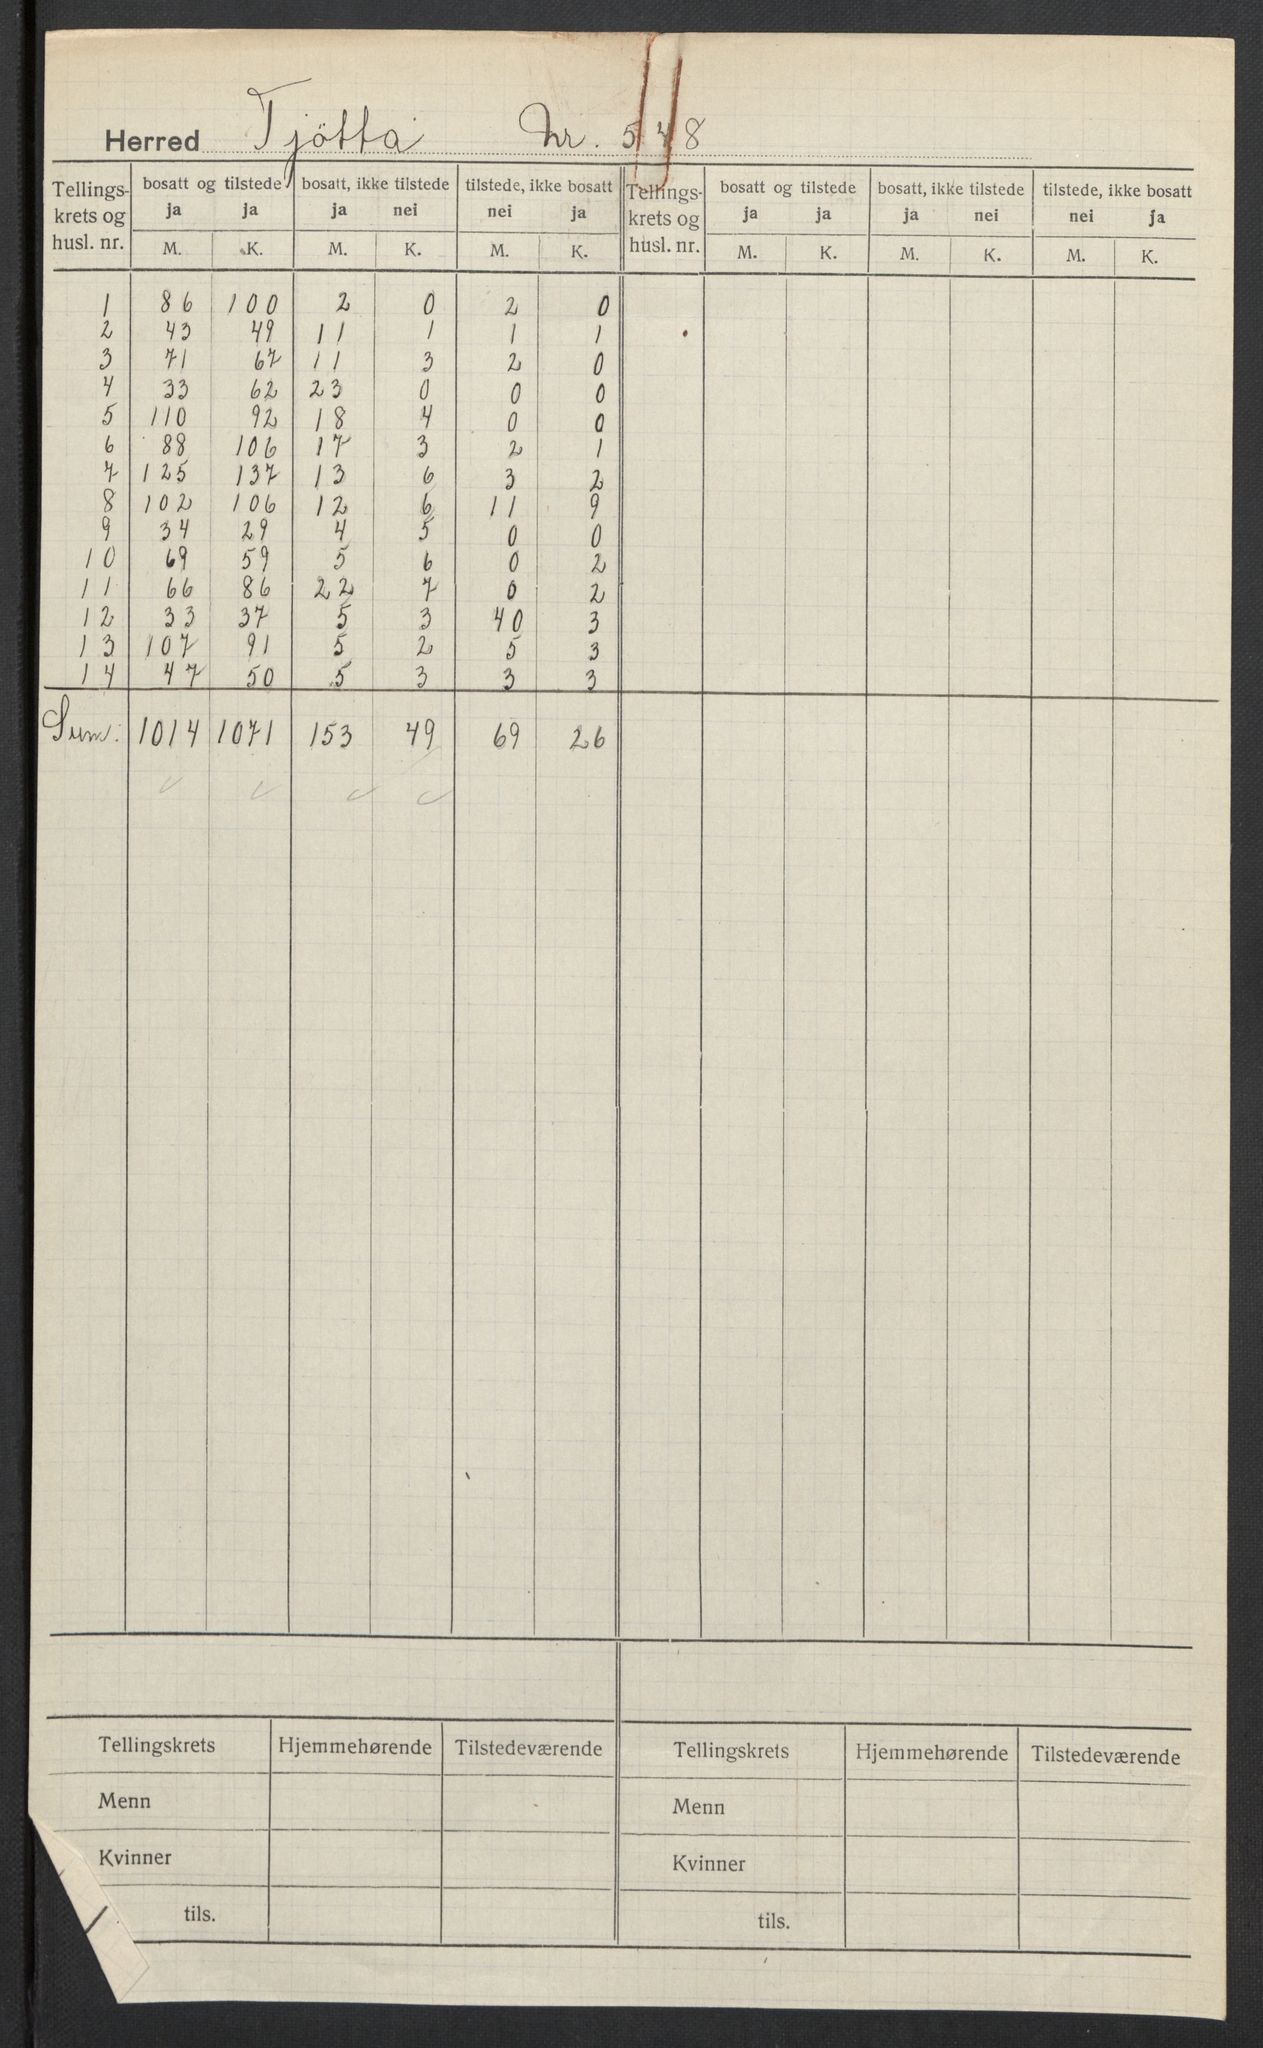 Herred Tjötta Nr. 548
Tellings- krets og husl. nr. bosatt og tilstede bosatt, ikke tilstede tilstede, ikke bosatt Tellings- krets og husl. nr. bosatt og tilstede bosatt, ikke tilstede tilstede, ikke bosatt
ja ja ja nei nei ja ja ja ja nei nei ja
M. K. M. K. M. K. M. K. M. K. M. K.
1 86 100 2 0 2 0
2 43 49 11 1 1 1
3 71 67 11 3 2 0
4 33 62 23 0 0 0
5 110 92 18 4 0 0
6 88 106 17 3 2 1
7 125 137 13 6 3 2
8 102 106 12 6 11 9
9 34 29 4 5 0 0
10 69 59 5 6 0 2
11 66 86 22 7 0 2
12 33 37 5 3 40 3
13 107 91 5 2 5 3
14 47 50 5 3 3 3
Sum: 1014 1071 153 49 69 26
Tellingskrets Hjemmehørende Tilstedeværende Tellingskrets Hjemmehørende Tilstedeværende
Menn Menn
Kvinner Kvinner
tils. tils.